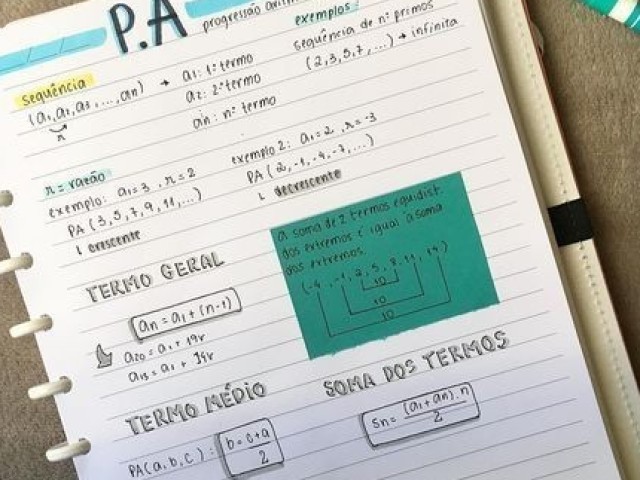 P.A
progressão aritm
exemplos
sequência de nºs primos
(2,3,5,7,...) → infinita
sequência
(a1,a2,a3,...,an) → a1: 1º termo
r
a2: 2º termo
an: nº termo
r = razão
exemplo: a1=3, r=2
PA (3,5,7,9,11,...)
↳ crescente
exemplo 2: a1=2, r=-3
PA (2,-1,-4,-7,...)
↳ decrescente
a soma de 2 termos equidist.
dos extremos é igual à soma
dos extremos
(-4,-1,2,5,8,11,14)
10
10
10
TERMO GERAL
an = a1 + (n-1)
a20 = a1 + 19r
a15 = a1 + 14r
TERMO MÉDIO
PA(a,b,c): b = c+a
2
SOMA DOS TERMOS
Sn = (a1+an).n
2